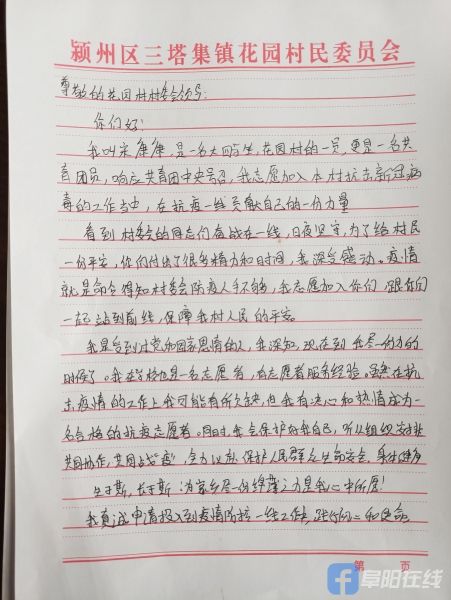 颍州区三塔集镇花园村民委员会
尊敬的花园村村委会领导:
你们好!
我叫宋康康,是一名大四学生,花园村的一员,更是一名共
青团员,响应共青团中央号召,我志愿加入本村抗击新冠病
毒的工作当中,在抗疫一线贡献自己的一份力量
看到村委会的同志们奋战在一线,日夜坚守,为了给村民
一份平安,你们付出了很多精力和时间,我深受感动。疫情
就是命令得知村委会防疫人手不够,我志愿加入你们,跟你们
一起站到前线,保障我村人民的平安。
我是受到过党和国家恩情的人,我深知,现在到我尽一份力的
时候了。我在学校也是一名志愿者,有志愿者服务经验。虽然在抗
击疫情的工作上我可能有所欠缺,但我有决心和热情成为一
名合格的抗疫志愿者。同时,我会保护好我自己,听从组织安排
共同协作,共同战"疫",全力以赴保护人民群众生命安全、身体健康
生于斯,长于斯,为家乡尽一份绵薄之力是我心中所愿!
我真诚申请投入到疫情防控一线工作中,践行初心和使命
第 页
阜阳在线